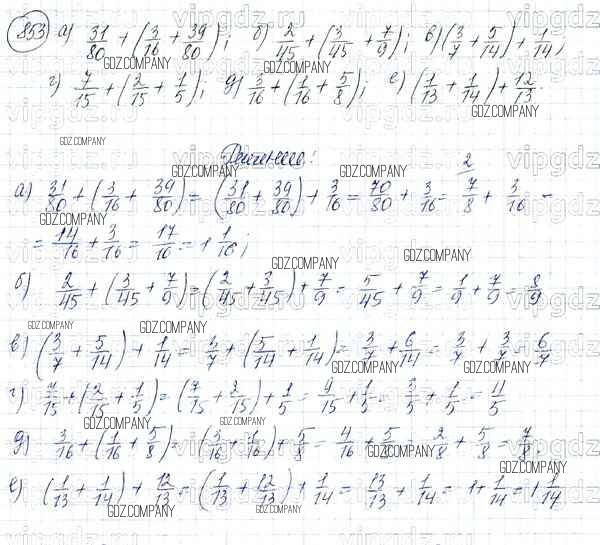 853 а) 31/80 + (3/16 + 39/80); б) 2/45 + (3/45 + 7/9); в) (3/7 + 5/14) + 1/14;
г) 7/15 + (2/15 + 1/5); д) 3/16 + (1/16 + 5/8); е) (1/13 + 1/14) + 12/13.
Решение:
а) 31/80 + (3/16 + 39/80) = (31/80 + 39/80) + 3/16 = 70/80 + 3/16 = 7/8 + 3/16 =
= 14/16 + 3/16 = 17/16 = 1 1/16;
б) 2/45 + (3/45 + 7/9) = (2/45 + 3/45) + 7/9 = 5/45 + 7/9 = 1/9 + 7/9 = 8/9
в) (3/7 + 5/14) + 1/14 = 3/7 + (5/14 + 1/14) = 3/7 + 6/14 = 3/7 + 3/7 = 6/7
г) 7/15 + (2/15 + 1/5) = (7/15 + 2/15) + 1/5 = 9/15 + 1/5 = 3/5 + 1/5 = 4/5
д) 3/16 + (1/16 + 5/8) = (3/16 + 1/16) + 5/8 = 4/16 + 5/8 = 2/8 + 5/8 = 7/8.
е) (1/13 + 1/14) + 12/13 = (1/13 + 12/13) + 1/14 = 13/13 + 1/14 = 1 + 1/14 = 1 1/14
GDZ.COMPANY
vipgdz.ru